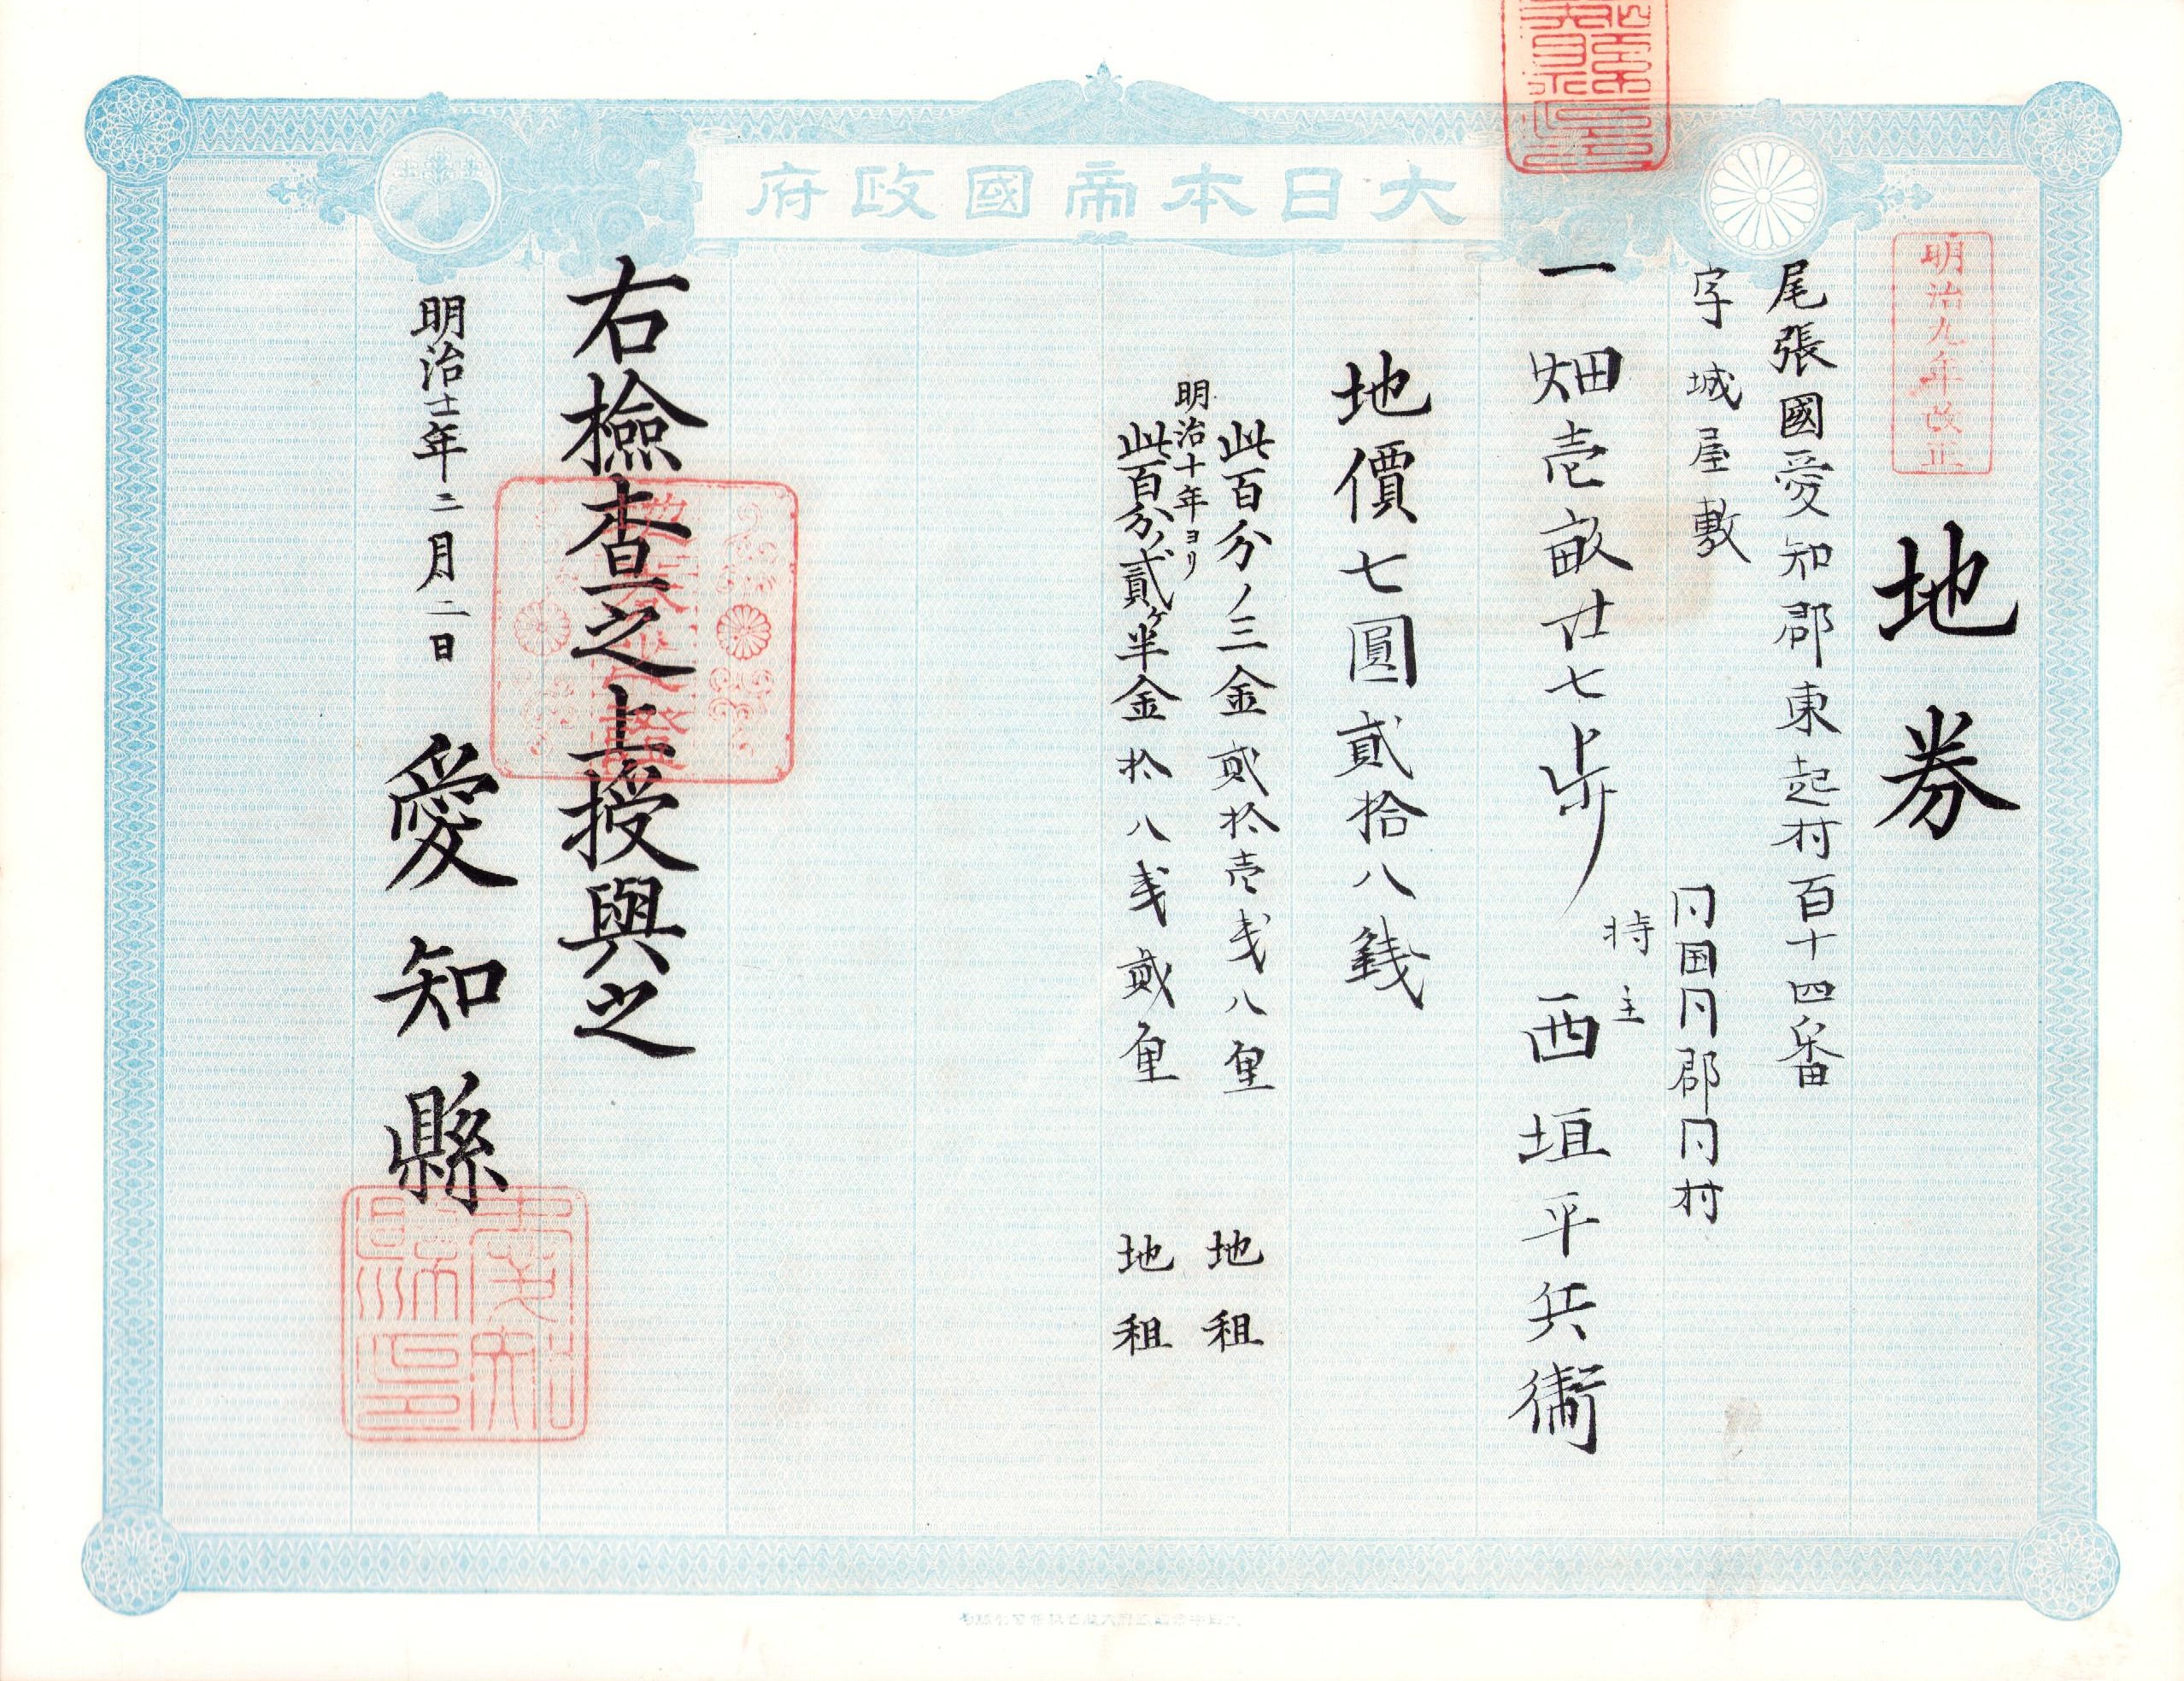 大日本帝國政府
明治九年改正
地券
尾張國愛知郡東起村百十四番
字城屋敷
同国同郡同村
持主
一畑壱畝廿七歩 西垣平兵衛
地價七圓貳拾八錢
此百分ノ三金貳拾壱戔八厘 地租
明治十年ヨリ
此百分ノ貳ヶ半金拾八戔貳厘 地租
右檢查之上授與之
明治十一年二月二日 愛知縣
愛知縣印